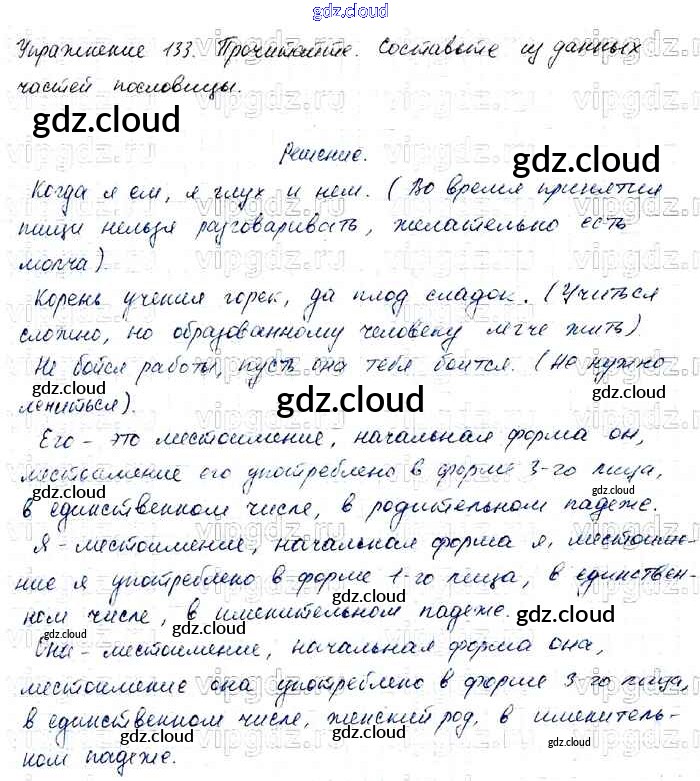 gdz.cloud
Упражнение 133. Прочитайте. Составьте из данных
частей пословицы.
gdz.cloud
Решение.
gdz.cloud
Когда я ем, я глух и нем. (Во время принятия
пищи нельзя разговаривать, желательно есть
молча).
Корень учения горек, да плод сладок. (Учиться
сложно, но образованному человеку легче жить)
Не бойся работы, пусть она тебя боится. (Не нужно
gdz.cloud gdz.cloud gdz.cloud
лениться).
Его - это местоимение, начальная форма он,
местоимение его употреблено в форме 3-го лица,
gdz.cloud gdz.cloud
в единственном числе, в родительном падеже.
Я - местоимение, начальная форма я, местоиме-
ние я употреблено в форме 1-го лица, в единствен-
ном числе, в именительном падеже.
gdz.cloud
gdz.cloud
Она - местоимение, начальная форма она,
местоимение она употреблено в форме 3-го лица,
в единственном числе, женский род, в именитель-
gdz.cloud gdz.cloud gdz.cloud
ном падеже.